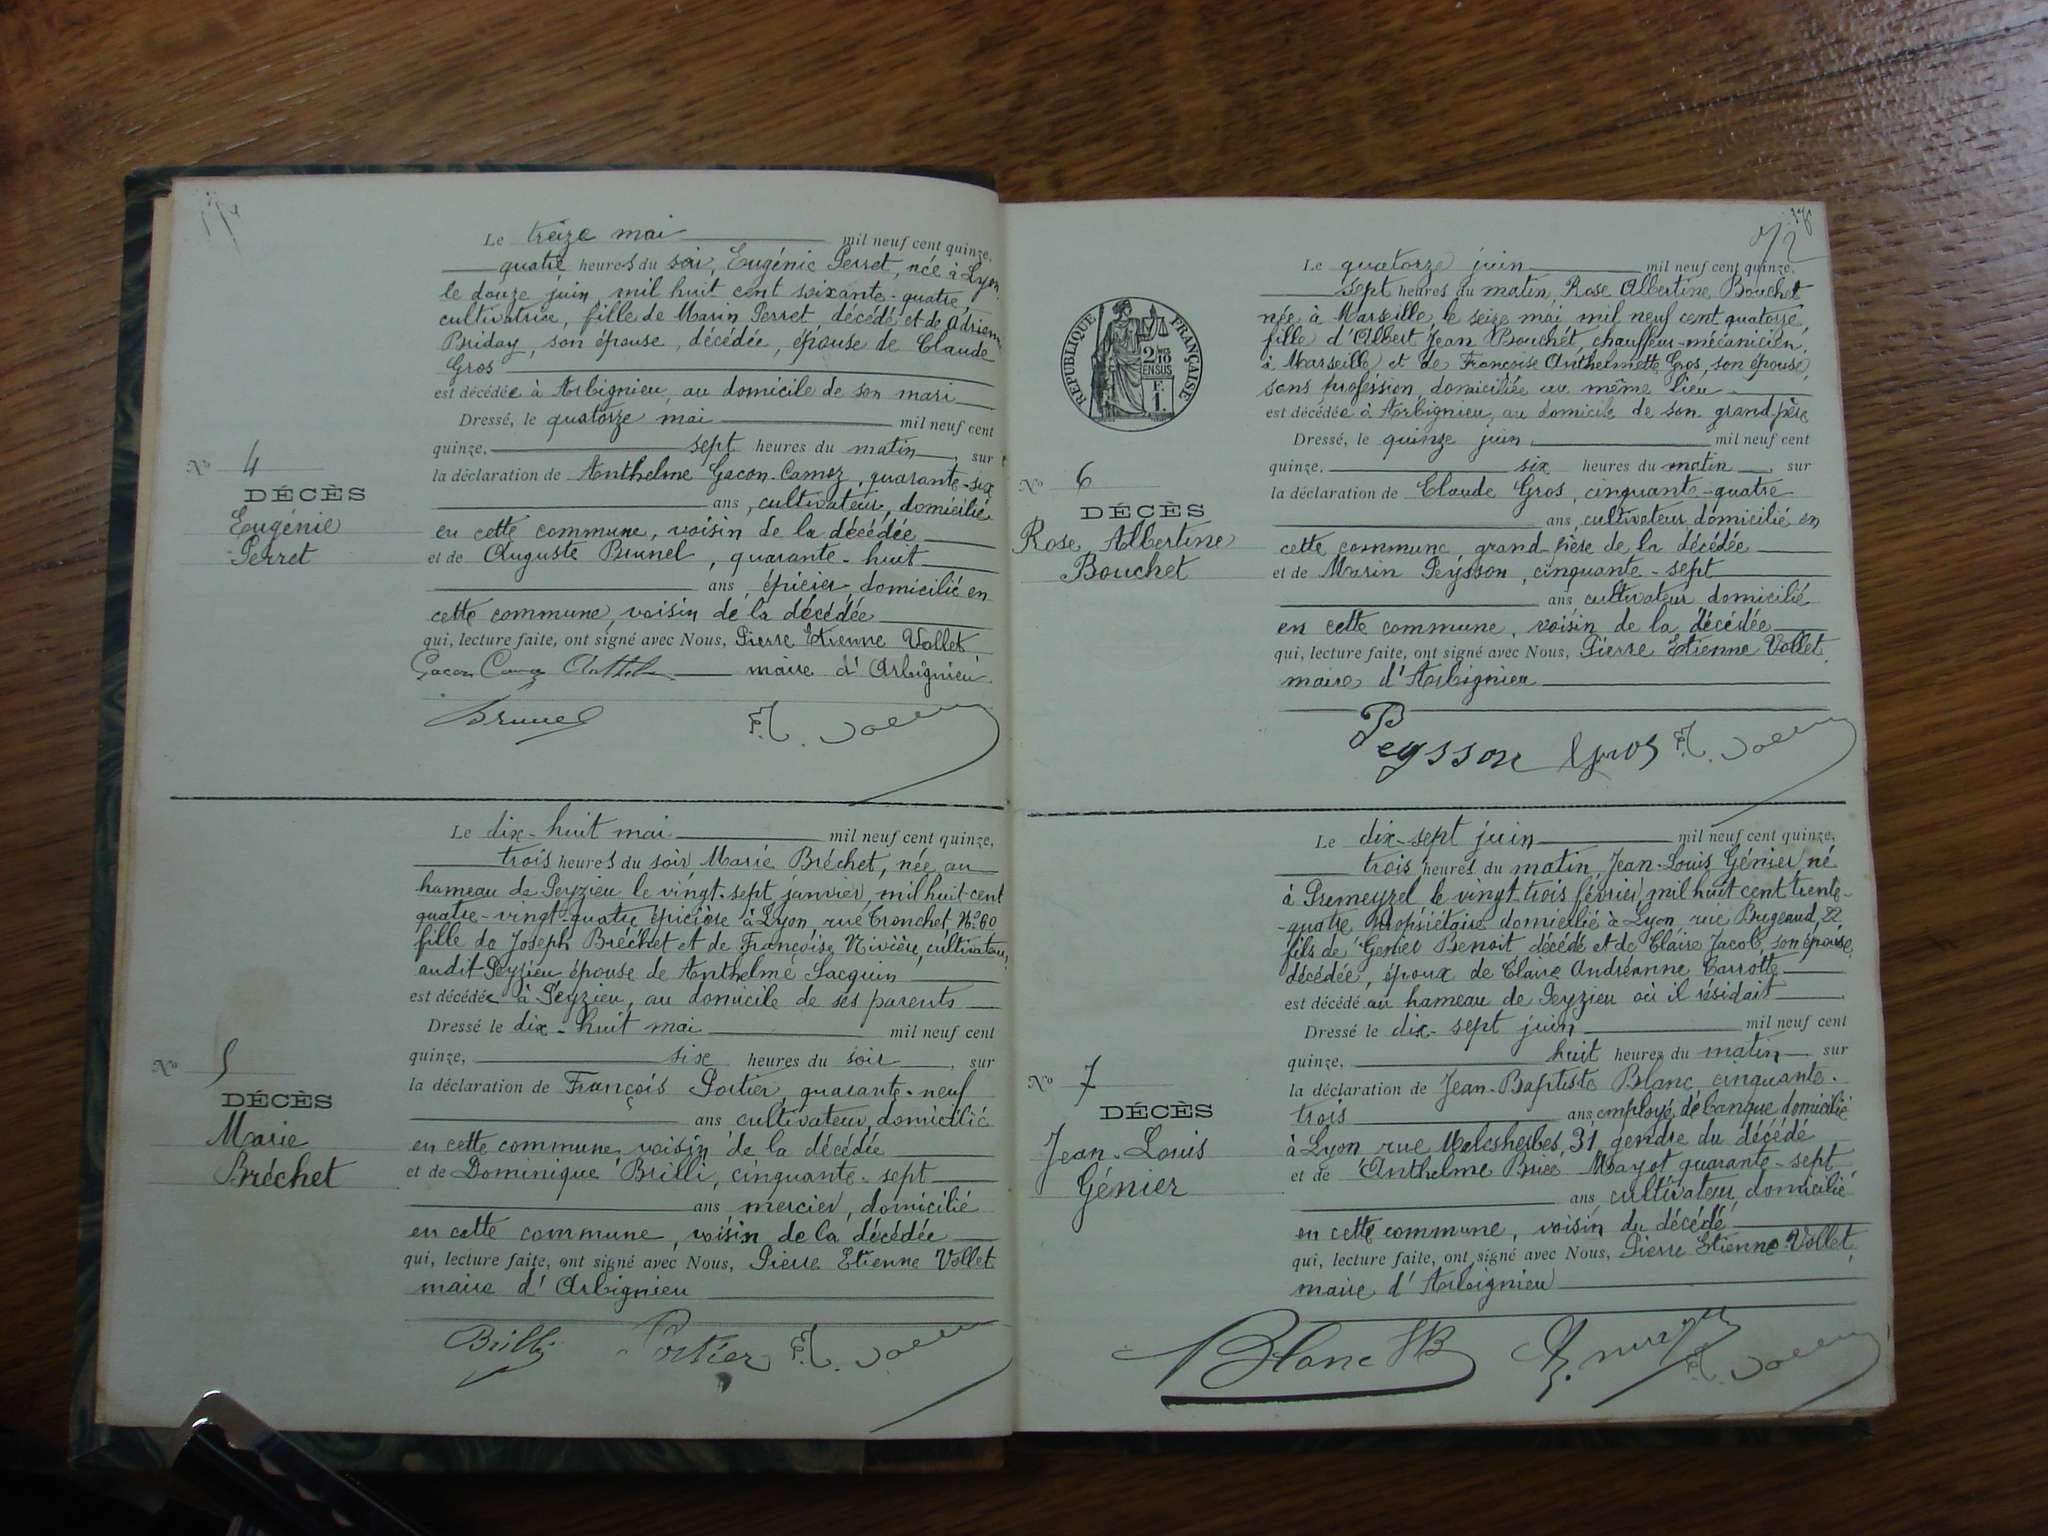 Le treize mai mil neuf cent quinze,
quatre heures du soir, Eugénie Perret, née à Lyon
le douze juin mil huit cent soixante-quatre,
cultivatrice, fille de Marin Perret, décédé et de Adrienne
Briday, son épouse, décédée, épouse de Claude
Gros
est décédée à Arbignieu, au domicile de son mari
Dressé, le quatorze mai mil neuf cent
quinze, sept heures du matin, sur
la déclaration de Anthelme Gacon-Camoz, quarante-six
ans, cultivateur, domicilié
en cette commune, voisin de la décédée
et de Auguste Brunel, quarante-huit
ans, épicier, domicilié en
cette commune, voisin de la décédée
qui, lecture faite, ont signé avec Nous, Pierre Etienne Vollet
maire d'Arbignieu
Gacon Camoz
Brunel
No 4
DÉCÈS
Eugénie
Perret
Le dix-huit mai mil neuf cent quinze,
trois heures du soir Marie Bréchet, née au
hameau de Peyzieu le vingt-sept janvier, mil huit cent
quatre-vingt-quatre, épicière à Lyon rue Tronchet, No 60
fille de Joseph Bréchet et de Françoise Rivière, cultivateurs
audit Peyzieu, épouse de Anthelme Jacquin
est décédée à Peyzieu, au domicile de ses parents
Dressé le dix-huit mai mil neuf cent
quinze, six heures du soir, sur
la déclaration de François Portier, quarante-neuf
ans cultivateur, domicilié
en cette commune, voisin de la décédée
et de Dominique Brilli, cinquante-sept
ans, mercier, domicilié
en cette commune, voisin de la décédée
qui, lecture faite, ont signé avec Nous, Pierre Etienne Vollet
maire d'Arbignieu
Brilli Portier
No 5
DÉCÈS
Marie
Bréchet
RÉPUBLIQUE FRANÇAISE
2/10
EN SUS
1 F.
Le quatorze juin mil neuf cent quinze,
sept heures du matin, Rose Albertine Bouchet
née à Marseille le seize mai mil neuf cent quatorze,
fille d'Albert Jean Bouchet, chauffeur-mécanicien,
à Marseille et de Françoise Anthelmette Gros, son épouse,
sans profession, domiciliée au même lieu
est décédée à Arbignieu, au domicile de son grand-père
Dressé, le quinze juin, mil neuf cent
quinze, six heures du matin, sur
la déclaration de Claude Gros, cinquante-quatre
ans, cultivateur domicilié en
cette commune, grand-père de la décédée
et de Marin Peysson, cinquante-sept
ans cultivateur domicilié
en cette commune, voisin de la décédée
qui, lecture faite, ont signé avec Nous, Pierre Etienne Vollet,
maire d'Arbignieu
Peysson Gros
No 6
DÉCÈS
Rose Albertine
Bouchet
Le dix-sept juin mil neuf cent quinze,
trois heures du matin, Jean-Louis Génier né
à Premeyzel le vingt-trois février, mil huit cent trente-
-quatre, propriétaire domicilié à Lyon, rue Bugeaud, 22
fils de Génier Benoit décédé et de Claire Jacob, son épouse,
décédée, époux de Claire Andréanne Carrotte
est décédé au hameau de Peyzieu où il résidait
Dressé le dix-sept juin mil neuf cent
quinze, huit heures du matin, sur
la déclaration de Jean-Baptiste Blanc, cinquante-
trois ans employé de banque, domicilié
à Lyon rue Malesherbes, 31, gendre du décédé
et de Anthelme Brice Mayot quarante-sept
ans, cultivateur, domicilié
en cette commune, voisin du décédé
qui, lecture faite, ont signé avec Nous, Pierre Etienne Vollet,
maire d'Arbignieu
Blanc JB
No 7
DÉCÈS
Jean-Louis
Génier